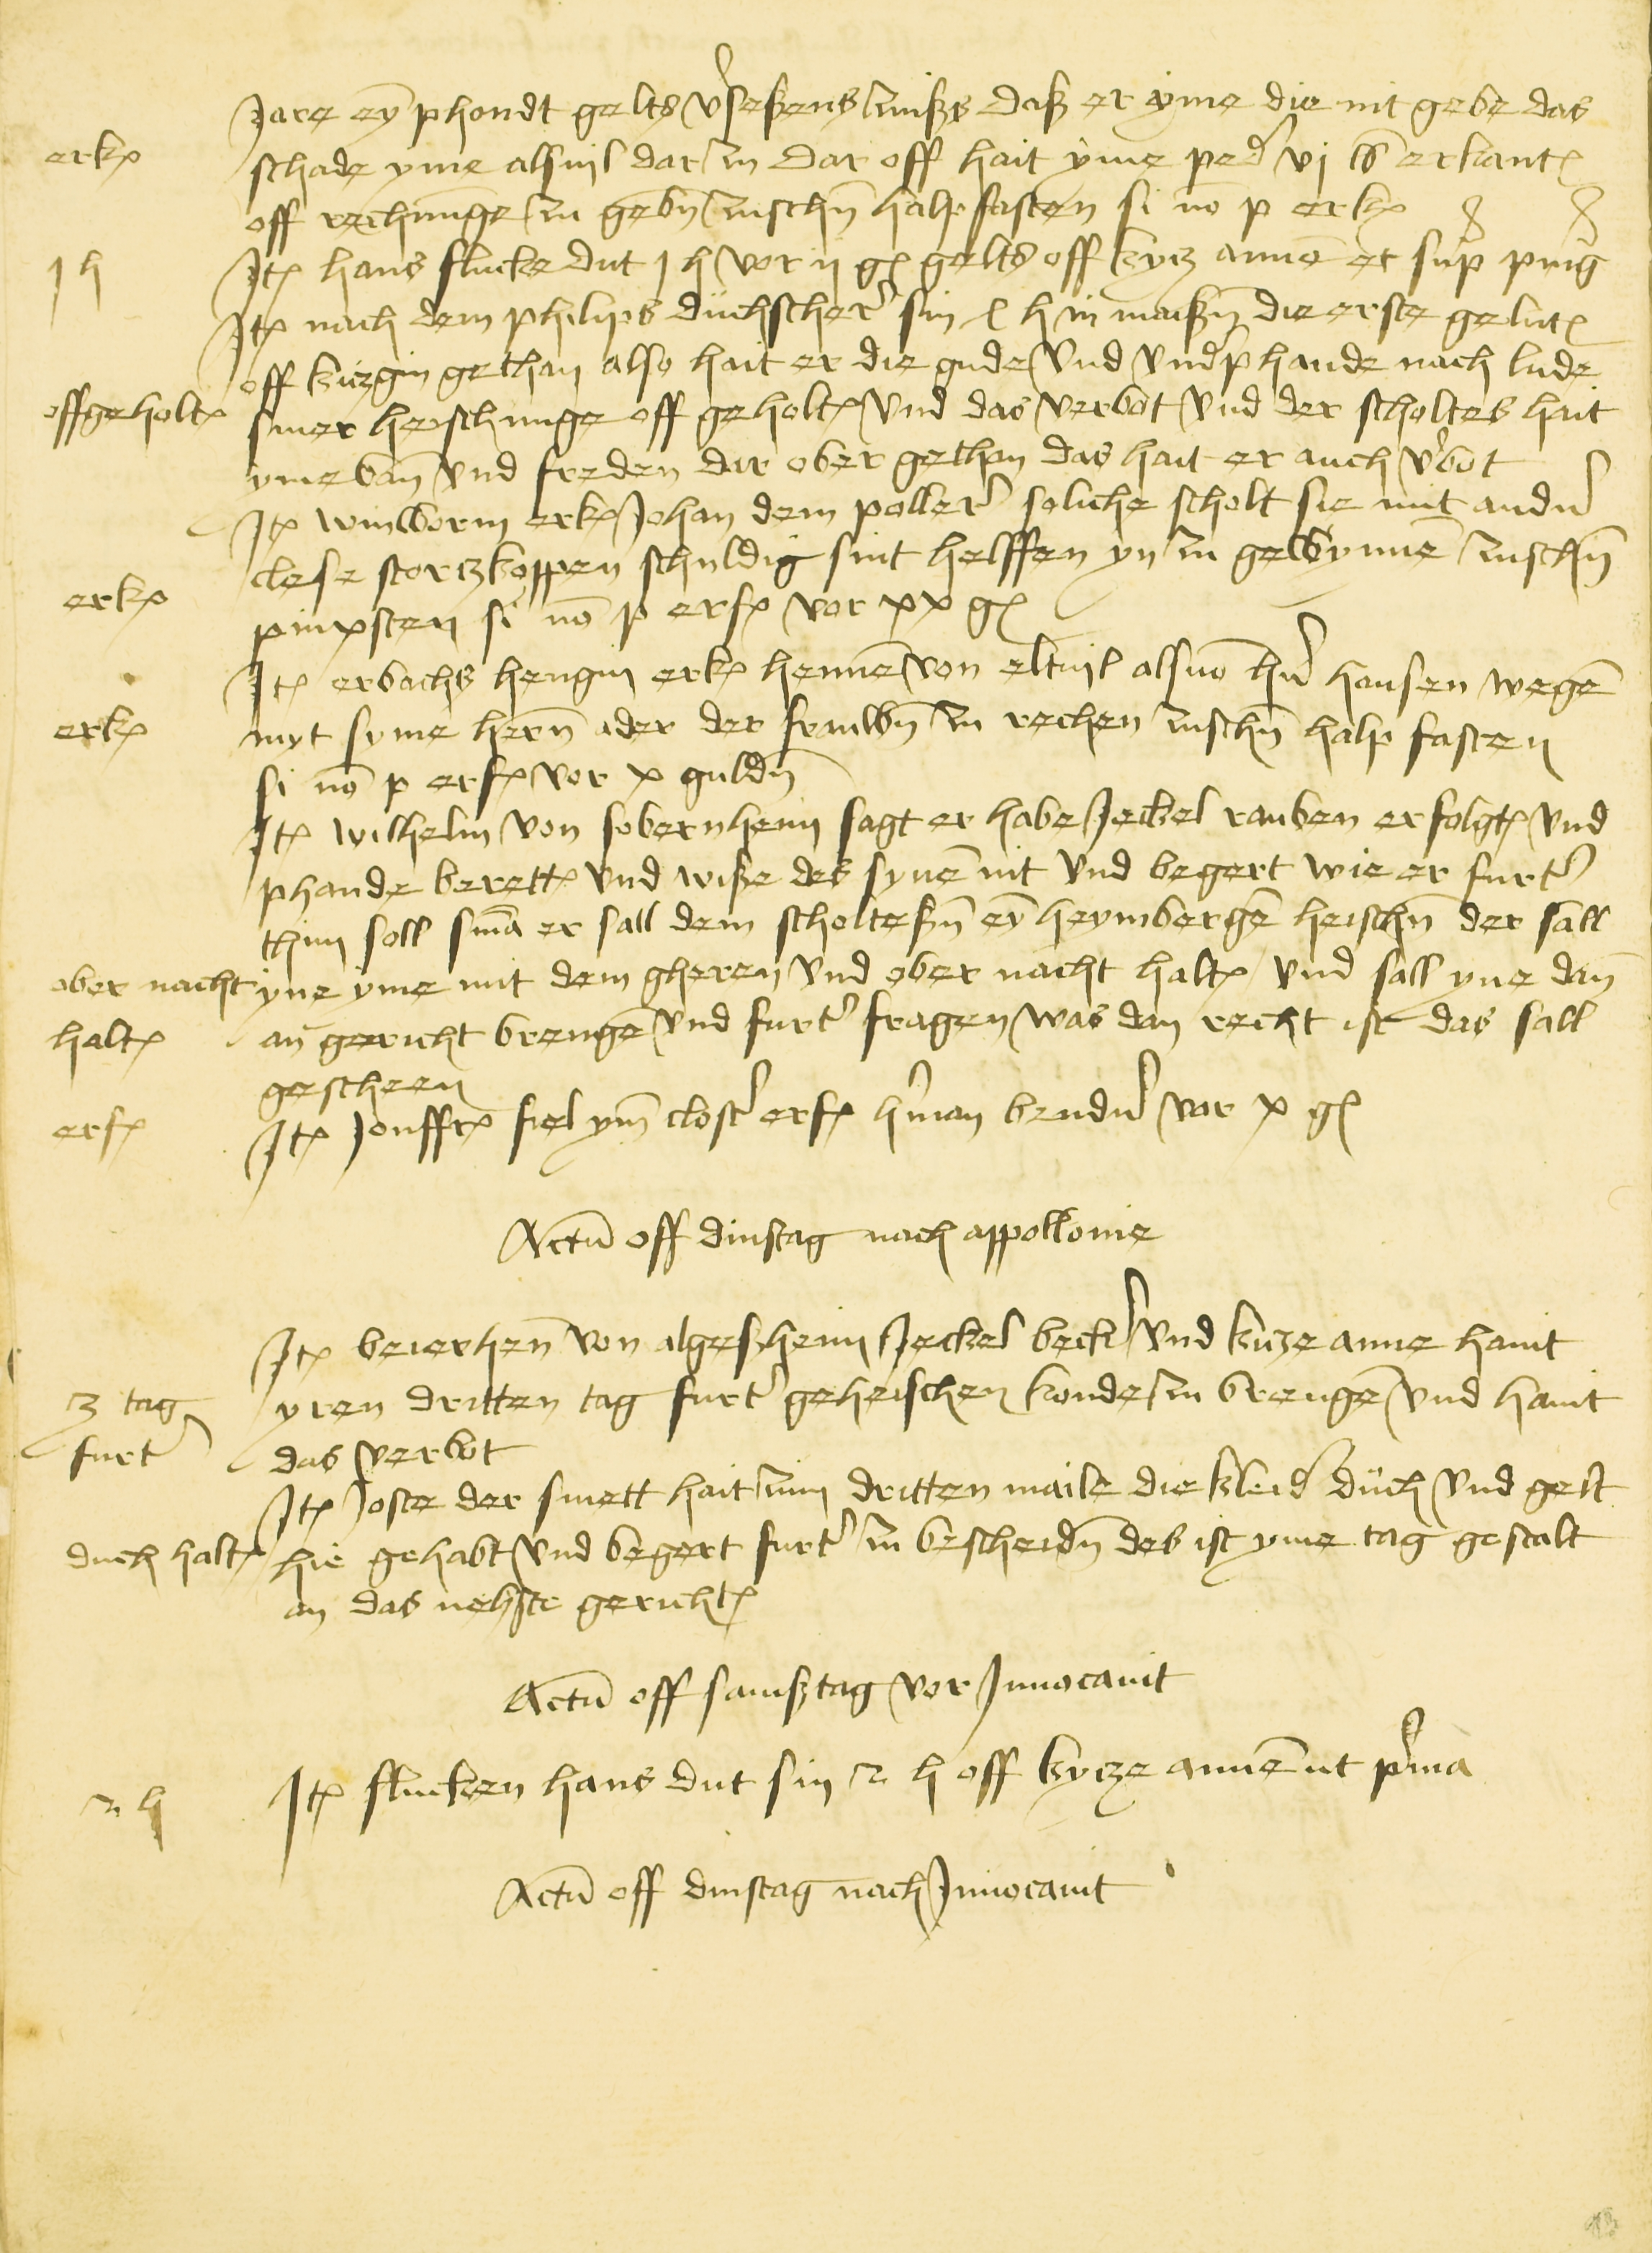 Jare eȳ phondt gelts v̓seßens zinßs daß er yme die nit gebe das
erk
schade yme alsuil dar zu Dar off hait yme ped̓ vj ß erkant
off rechnu̅ge zu gebn̄ zuschn̄ halpfasten si no̅ p erk
j h
Jt hans flucke dut j h vor ij g gelts off kycz anne̅ et sup̓ pig̓
Jt nach dem philips duchscherer̓ sin h in maißn̄ die erste gelut
off kuczgin gethan also hait er die gude vnd vnd̓phande nach lude
offgeholt
siner heischunge off geholt vnd das verbot vnd der scholtes hait
yme ban̄ vnd freden dar ober gethan das hait er auch v̓bot
Jt winworm erk Johan dem poller̓ soliche scholt sie mit and̓
clese storczkoppen schuldig sint helffen yn zu gewynne̅ zuschn̄
erk
pinxsten si no̅ p erf vor xx g
Jt erbachs hengin erk henne̅ von eltuil alsuo̅ h̓ hansen wege̅
erk
myt syme hern̄ ader der frauwn̄ zu rechen zuschn̄ halp fasten
si no̅ p erf vor x guldn̄
Jt wilhelm von sobernheim sagt er habe Jeckel rauben erfolgt vnd
phande berett vnd wiße des syne̅ nit vnd begert wie er furt̓
thun soll sn̅a er sall dem scholteßn̄ eȳ heymberge̅ heischn̄ der sall
ober nacht
yne yme mit dem gheren vnd ober nacht halt vnd sall yne dan̄
halt
an̄ gericht brenge̅ vnd furt̓ fragen was dan recht ist das sall
gescheen
erf
Jt Jonffr fiel ym̄ clost̓ erf h̓man bend̓ vor x g
Actu̅ off dinstag nach appollonie
Jt beierhen̄ von algeßheim Jeckel beck̓ vnd kucze anne hant
3 tag
yren dritten tag furt̓ geheischen konde zu brenge̅ vnd hant
furt̓
das verbot
Jt Joste der smett hait zum dritten maile die kleid̓ duch vnd gelt
duch halt
hie gehabt vnd begert furt̓ zu bescheidn̄ des ist yme tag gestalt
an das nehste gericht
Actu̅ off samßtag vor Jnuocauit
2 h
Jt flucken hans dut sin 2 h off kycze anne̅ ut p̓ma
Actu̅ off dinstag nach Jnuocauit